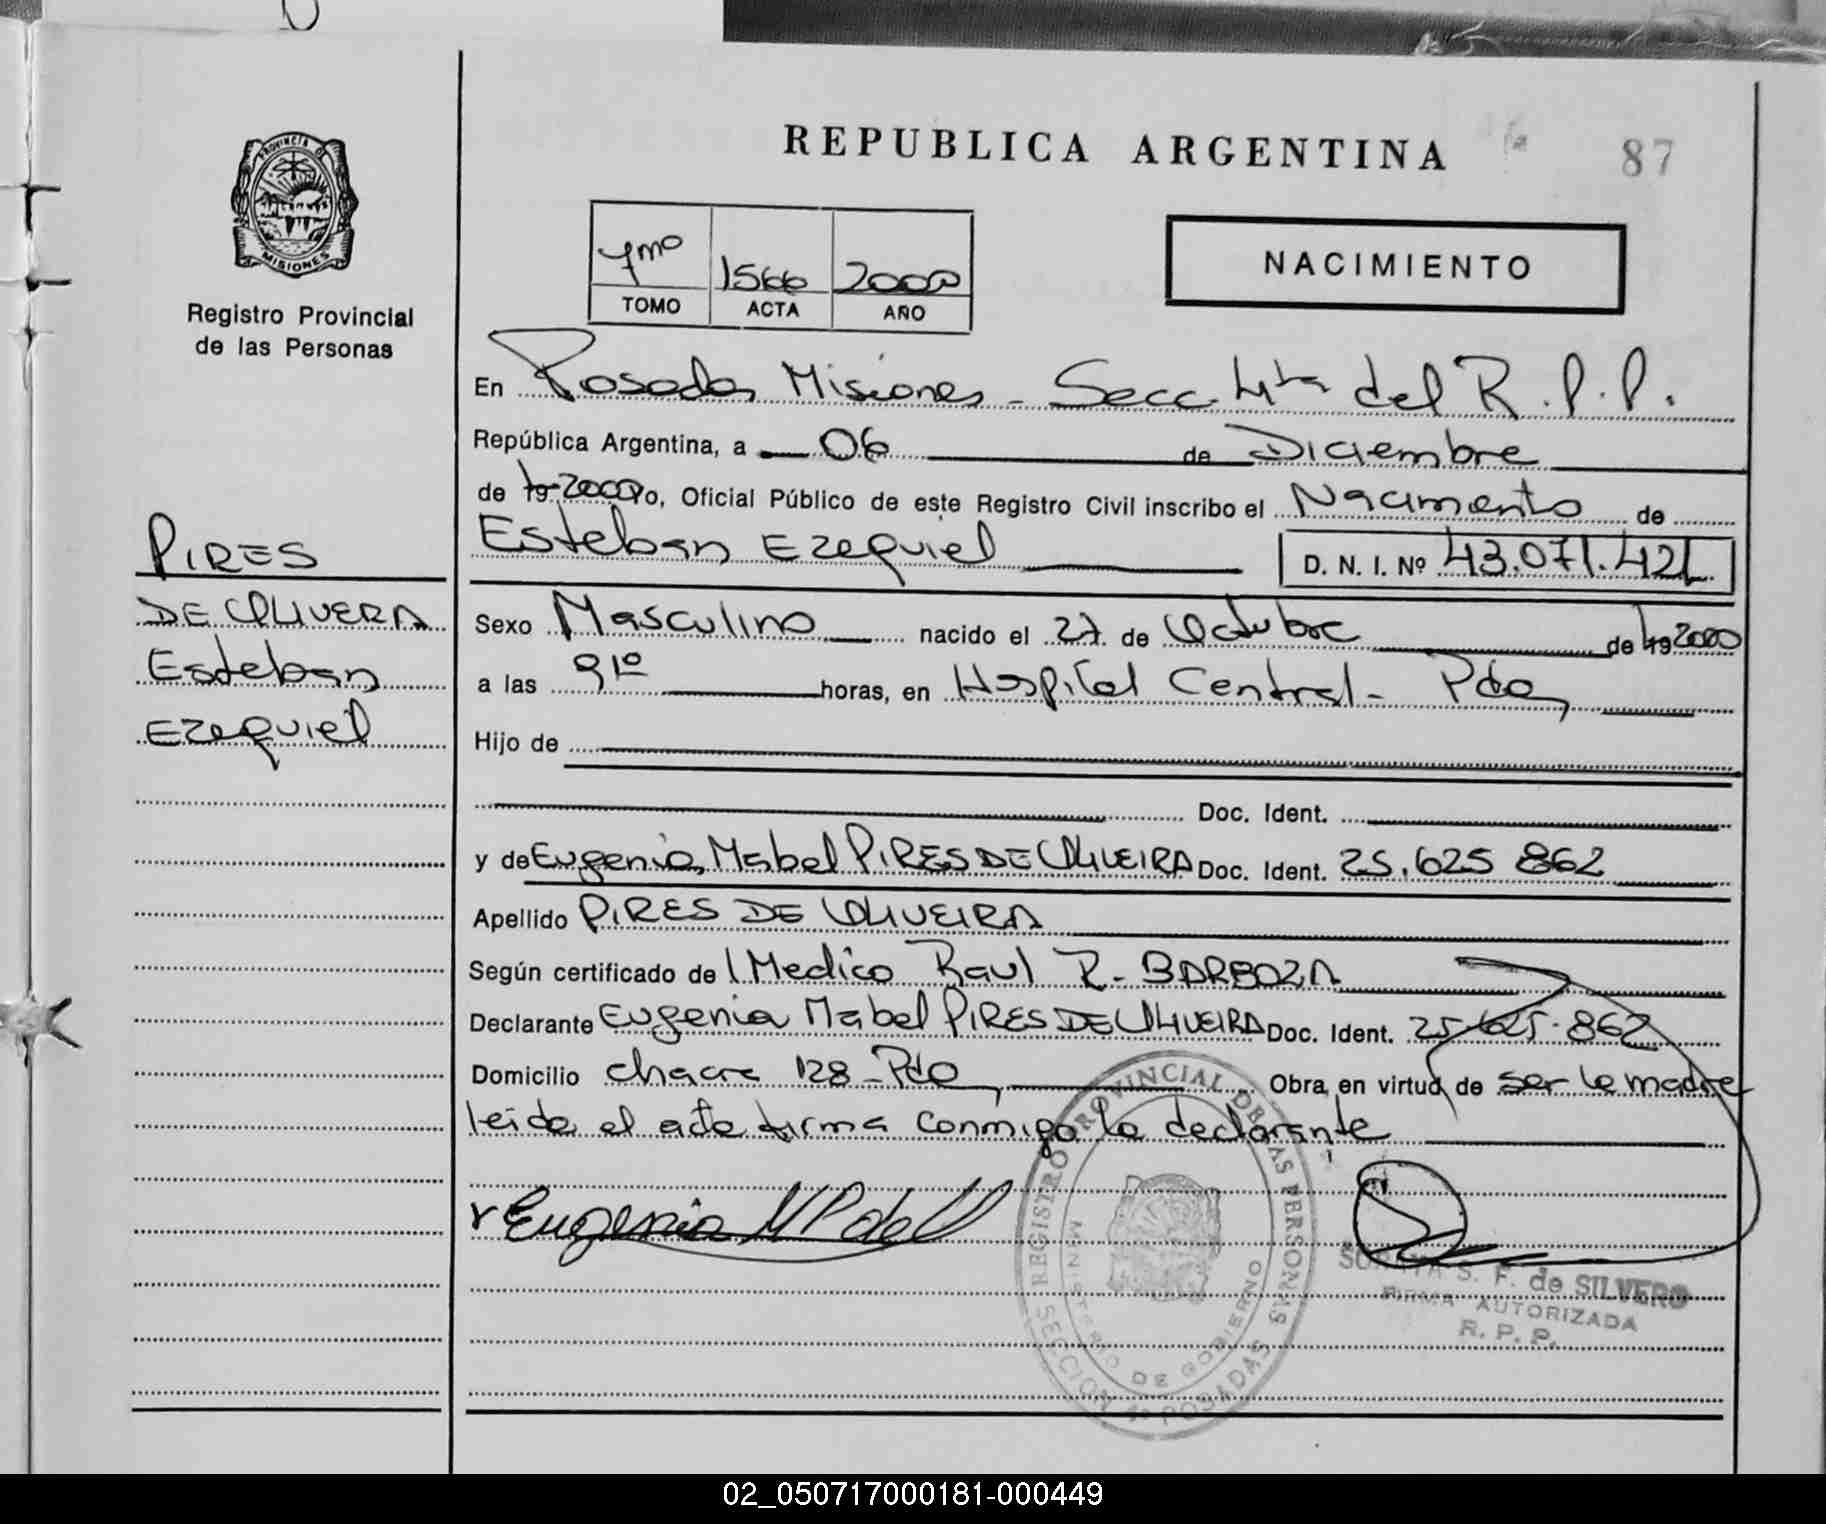 REPUBLICA ARGENTINA
87
PROVINCIA D
MISIONES
Registro Provincial
de las Personas
7mo 1566 2000
TOMO ACTA AÑO
NACIMIENTO
En Posadas Misiones - Secc. 4ta del R.P.P.
República Argentina, a 06 de Diciembre
de 19 2000 yo, Oficial Público de este Registro Civil inscribo el Nacimiento de
Esteban Ezequiel D. N. I. Nº 43.071.421
PIRES
DE OLIVERA
Esteban
Ezequiel
Sexo Masculino nacido el 27 de Octubre de 19 2000
a las 9 10 horas, en Hospital Central - Pdas
Hijo de
Doc. Ident.
y de Eugenia Mabel PIRES DE OLIVEIRA Doc. Ident. 25.625 862
Apellido PIRES DE OLIVEIRA
Según certificado de l Medico Raul R. BARBOZA
Declarante Eugenia Mabel PIRES DE OLIVEIRA Doc. Ident. 25.625.862
Domicilio chacra 128 - Pdas Obra en virtud de ser la madre
leida el acta firma conmigo la declarante
Eugenia M P de O
REGISTRO PROVINCIAL DE LAS PERSONAS
MINISTERIO DE GOBIERNO
SECCION 4ª POSADAS
S. F. de SILVERO
FIRMA AUTORIZADA
R. P. P.
02_050717000181-000449